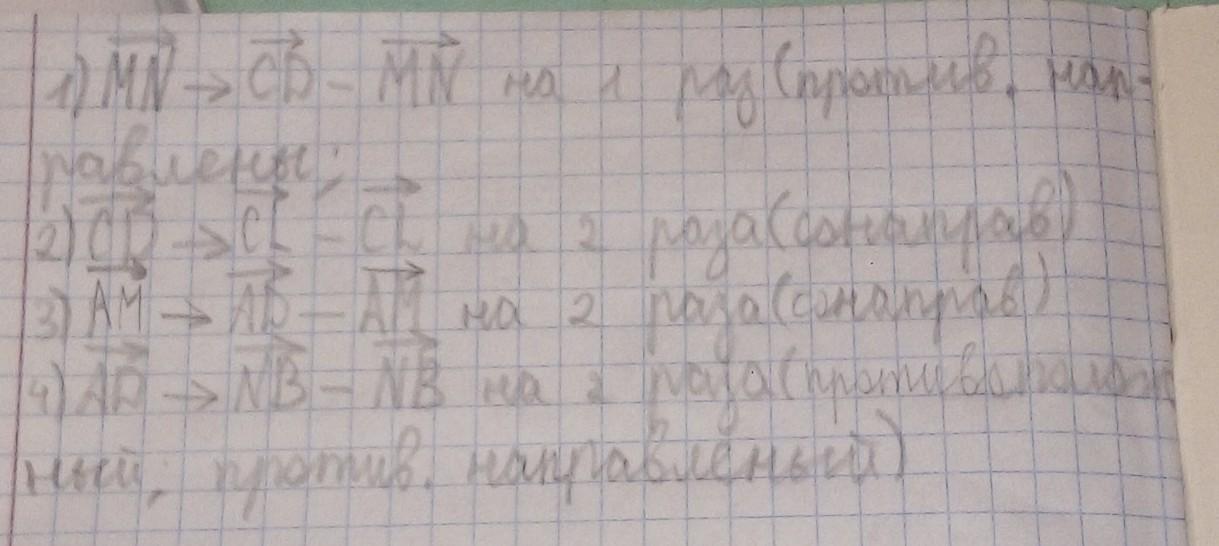 1) MN → CD - MN на 1 раз (против. нап-
равлены;
2) CD → CL - CL на 2 раза (сонаправ)
3) AM → AD - AM на 2 раза (сонаправ)
4) AD → NB - NB на 2 раза (противополож
ный, против. направленый)